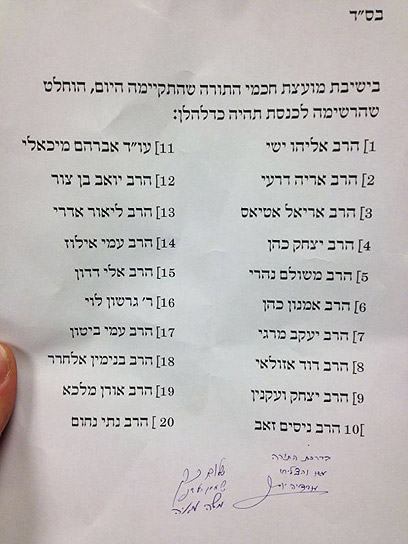 בס"ד
בישיבת מועצת חכמי התורה שהתקיימה היום, הוחלט
שהרשימה לכנסת תהיה כדלהלן:
1] הרב אליהו ישי
2] הרב אריה דרעי
3] הרב אריאל אטיאס
4] הרב יצחק כהן
5] הרב משולם נהרי
6] הרב אמנון כהן
7] הרב יעקב מרגי
8] הרב דוד אזולאי
9] הרב יצחק ועקנין
10] הרב ניסים זאב
11] עו"ד אברהם מיכאלי
12] הרב יואב בן צור
13] הרב ליאור אדרי
14] הרב עמי אילוז
15] הרב אלי דדון
16] ר' גרשון לוי
17] הרב עמי ביטון
18] הרב בנימין אלחרר
19] הרב אורן מלכא
20 ] הרב נתי נחום
בברכת התורה
והצליחו
שלום כהן
משה מאיה